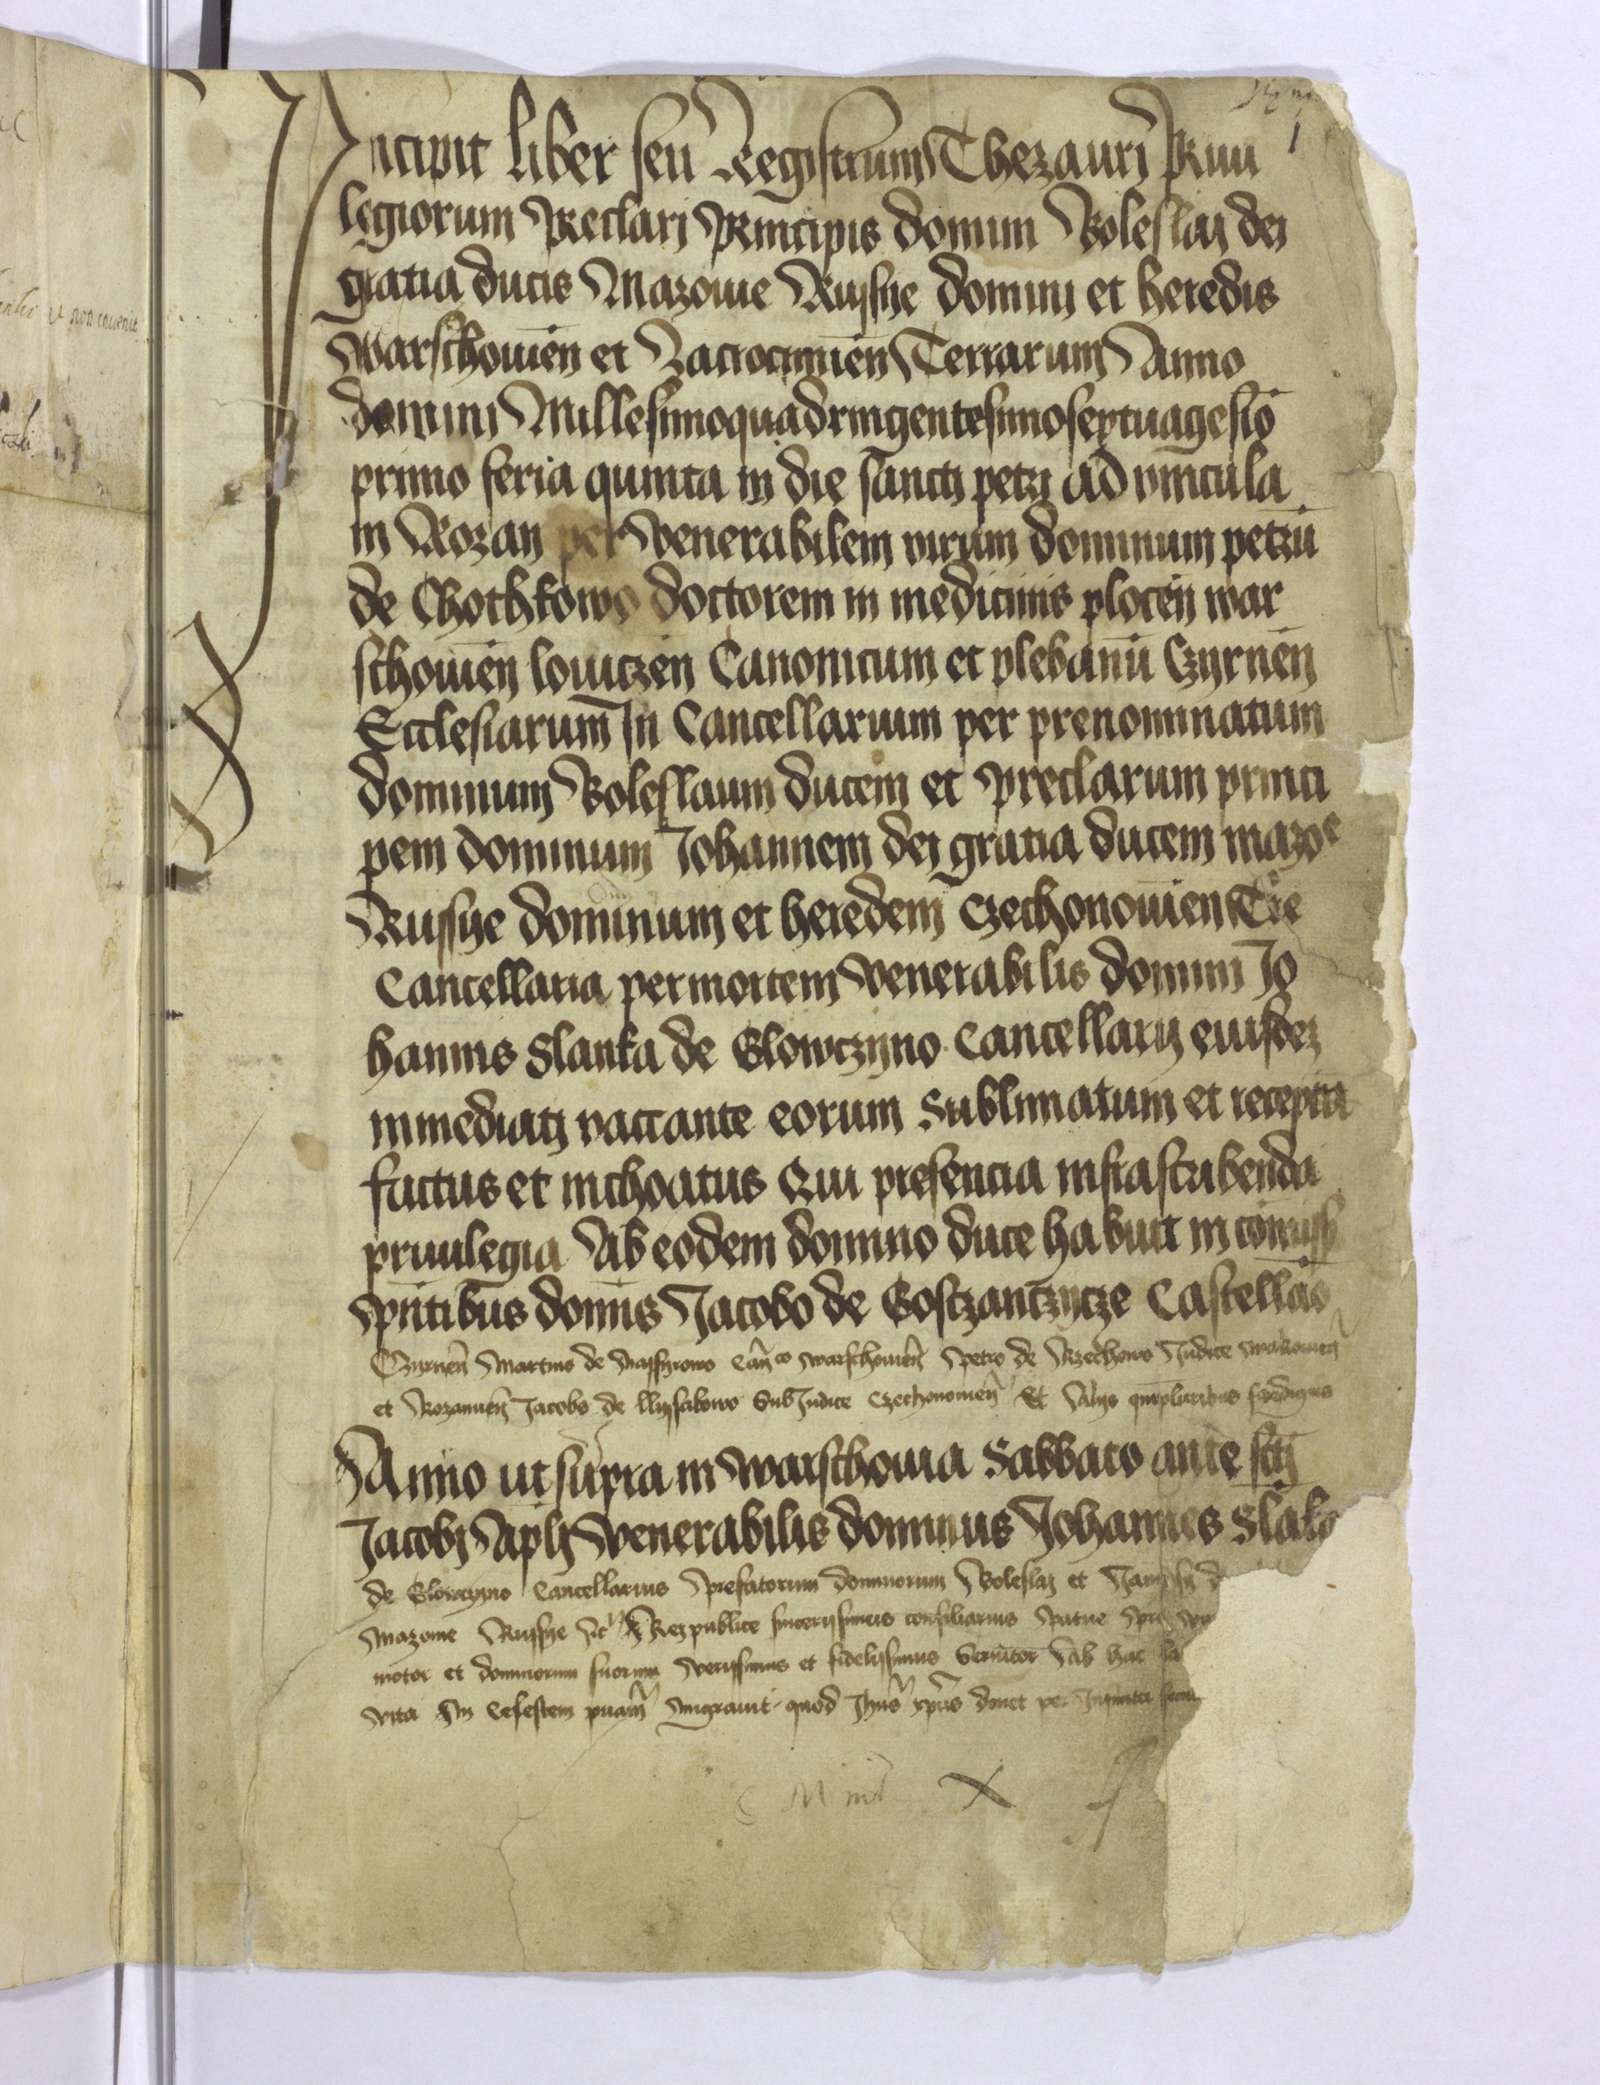 Incipit liber seu Registrum Thezauri Priui
legiorum Preclari Principis domini Boleslaj dej
gratia ducis Mazouie Russye domini et heredis
Warschouien̄ et Zacrocimien̄ Terrarum Anno
domini Millesimoquadringentesimoseptuagesio
primo feria quinta in die sanctj petrj ad vincula
in Rozan per venerabilem virum dominum petrū
de Chothkowo doctorem in medicinis plocen̄ war
schouien̄ louiczen̄ Canonicum et plebanū Czyrnen̄
Ecclesiarum In Cancellarium per prenominatum
dominum Boleslaum ducem et preclarum princi
pem dominum Johannem dej gratia ducem mazoe
Russye dominum et heredem Czechonouien̄ Tre
Cancellaria per mortem venerabilis domini Jo
hannis Slanka de Glowczyno Cancellarij eiusdez
immediatj vaccante eorum Sublimatum et receptū
factus et inchoatus Qui presencia infrascribenda
priuilegia Ab eodem domino duce habuit in com̄iss
pn̄tibus domīs Jacobo de Gostzantczycze Castellāo
Czyrnen̄ Martino de Can̄co warschouien̄ Petro de Rzechowo Judice
et Rozanien̄ Jacobo de SubJudice Czechonouien̄ Et Alijs quāpluribus fidedignis
Anno ut supra in Warschouia Sabbato ante sctj
Jacobj Aplj Venerabilis dominus Johannes Slāka
de Glowczyno Cancellarius Prefatorum dominorum Boleslaj et
Mazouie Russye Reipublice sincerissimus consiliarius Patrie
motor et dominorum suorum verissimus et fidelissimus Seruitor Ab hac
vita In Celestem migrauit quod Jhus xpus donet
X